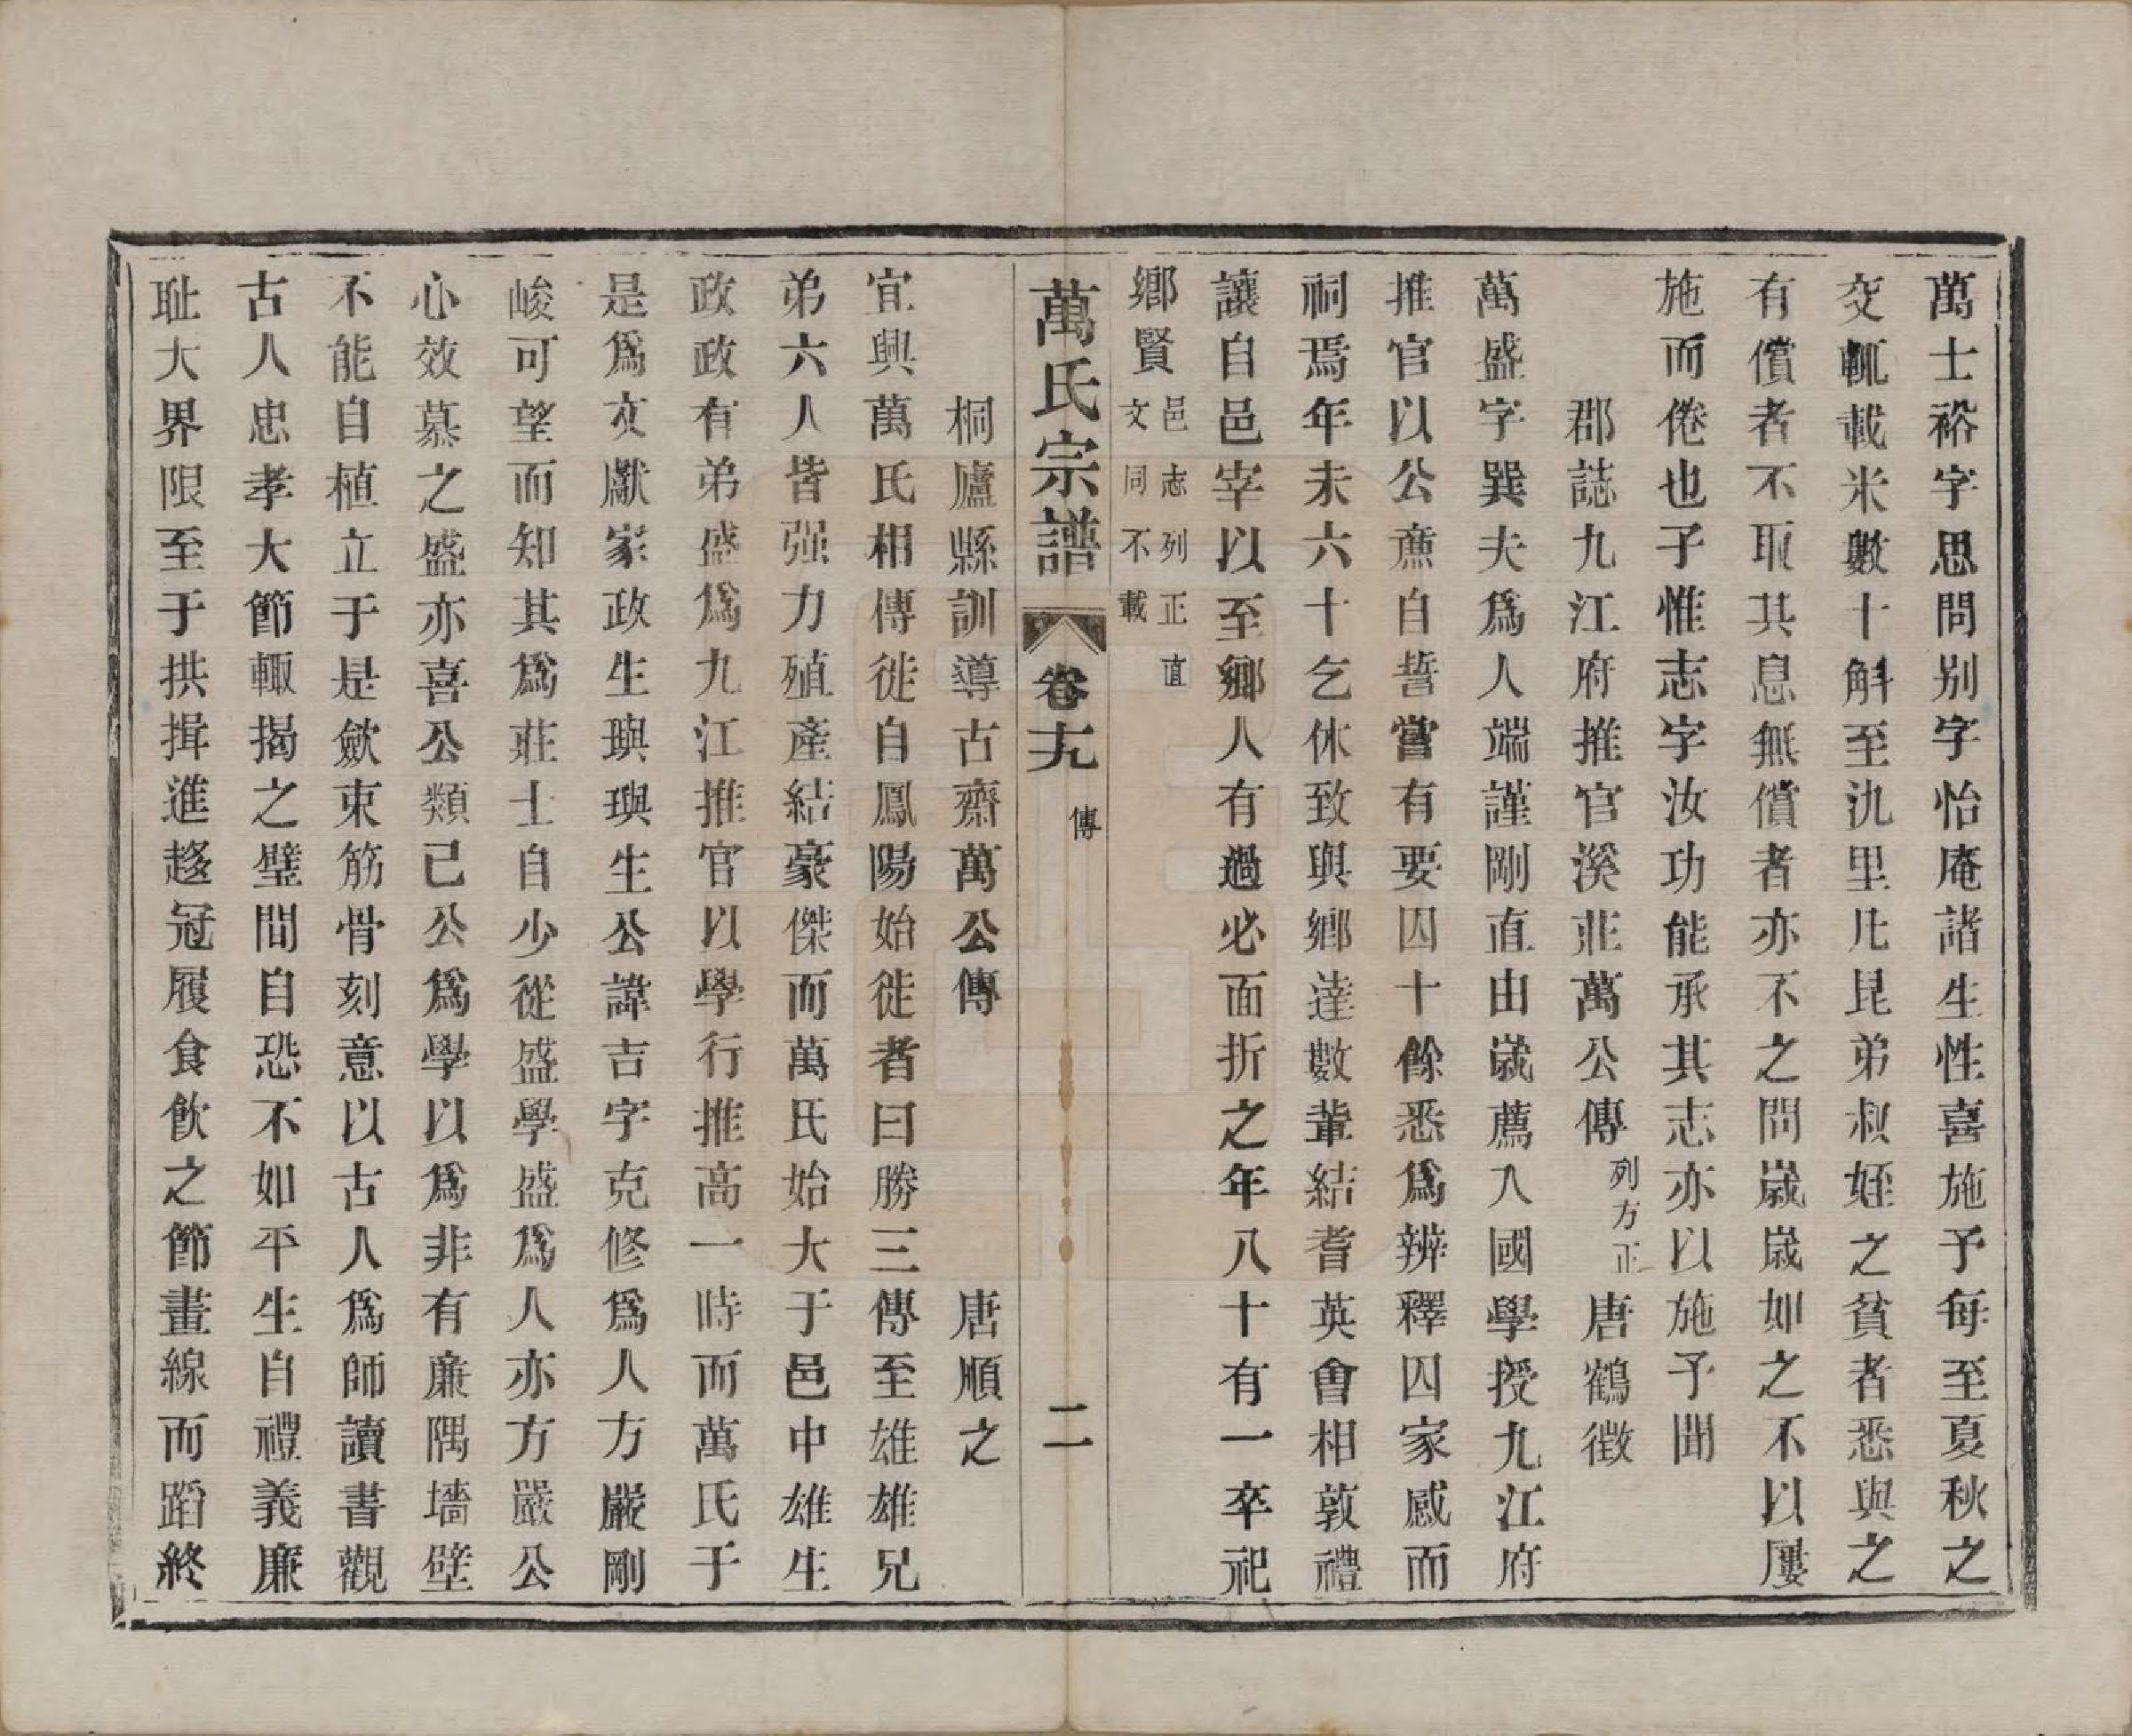 萬士裕字思問别字怡庵諸生性喜施予每至夏秋之
交輒載米數十斛至氿里凡昆弟叔姪之貧者悉與之
有償者不取其息無償者亦不之問嵗嵗如之不以屢
施而倦也子惟志字汝功能承其志亦以施予聞
郡誌九江府推官溪莊萬公傳 列方正 唐鶴徵
萬盛字巽夫爲人端謹剛直由嵗薦入國學授九江府
推官以公亷自誓嘗有要囚十餘悉爲辨釋囚家感而
祠焉年未六十乞休致與鄉達數輩結耆英會相敦禮
讓自邑宰以至鄉人有過必面折之年八十有一卒祀
鄉賢 邑志列正直
文同不載
萬氏宗譜 卷十九 傳 二
桐廬縣訓導古齋萬公傳 唐順之
宜興萬氏相傳徙自鳳陽始徙者曰勝三傳至雄雄兄
弟六人皆强力殖產結豪傑而萬氏始大于邑中雄生
政政有弟盛爲九江推官以學行推高一時而萬氏于
是爲文獻家政生璵璵生公諱吉字克修爲人方嚴剛
峻可望而知其爲莊士自少從盛學盛爲人亦方嚴公
心效慕之盛亦喜公類己公爲學以爲非有廉隅墻壁
不能自植立于是歛束筋骨刻意以古人爲師讀書觀
古人忠孝大節輙揭之璧間自恐不如平生自禮義廉
耻大界限至于拱揖進趍冠履食飲之節畫線而蹈終